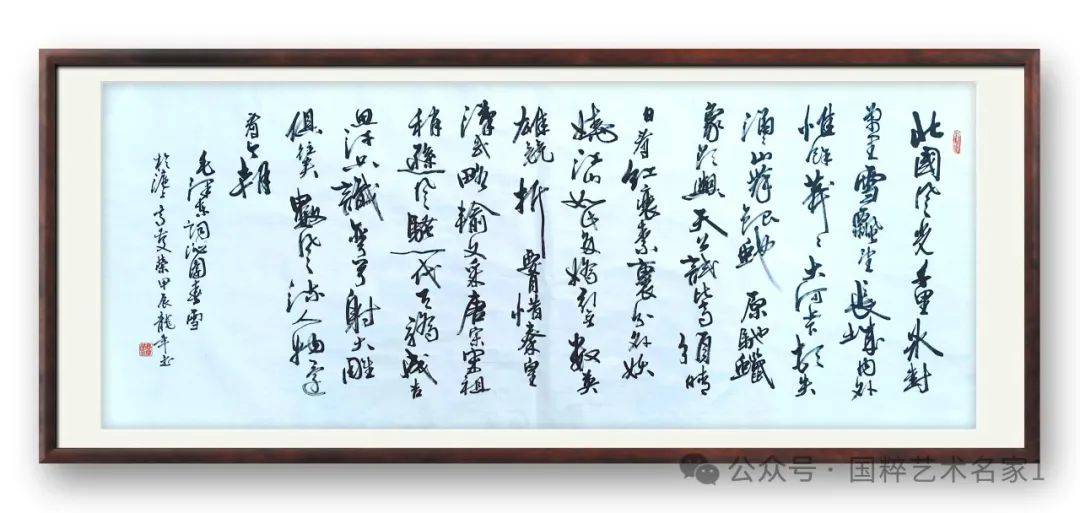 北國风光千里冰封
萬里雪飄望長城内外
惟餘莽〻大河上下頓失
滔山舞銀蛇原馳蠟
象欲與天公試比高須晴
日看红裝素裹分外妖
嬈江山如此多嬌引無數英
雄競折腰惜秦皇
漢武略输文采唐宗宋祖
稍遜风騷一代天驕成吉
思汗只識彎弓射大雕
俱往矣數风流人物還
看今朝
毛澤東詞沁園春雪
於 榮甲辰龍年書
公众号 · 国粹艺术名家1